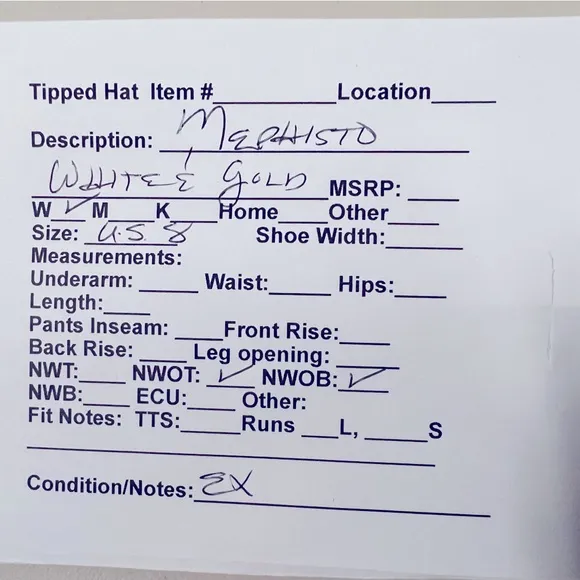 Tipped Hat Item #__________Location_____
Description: MEPHISTO
WHITE & GOLD MSRP: ____
W_✓_M___K____Home____Other____
Size: U.S. 8 Shoe Width:______
Measurements:
Underarm: ____ Waist:_____ Hips:____
Length:____
Pants Inseam: ____Front Rise:____
Back Rise: ____ Leg opening: _____
NWT:____ NWOT: _✓_ NWOB:_✓_
NWB:____ ECU:____ Other:
Fit Notes: TTS:_____Runs ___L, _____S
Condition/Notes: EX